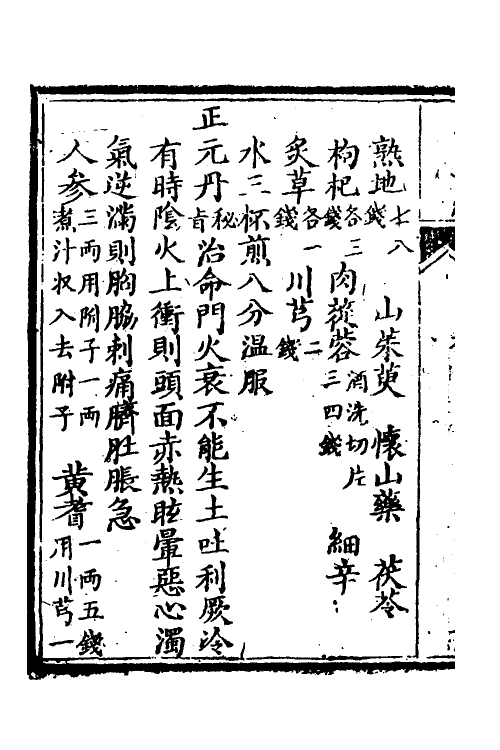 熟地七八錢 山茱萸 懷山藥 茯苓
枸杞各三錢 肉蓯蓉酒洗切片三四錢 細辛
炙草各一錢 川芎二錢
水三杯煎八分温服
正元丹秘旨 治命門火衰不能生土吐利厥冷
有時陰火上衝則頭面赤熱眩暈惡心濁
氣逆滿則胸脇刺痛臍肚脹急
人參三兩用附子一兩煮汁収入去附子 黃耆一兩五錢用川芎一